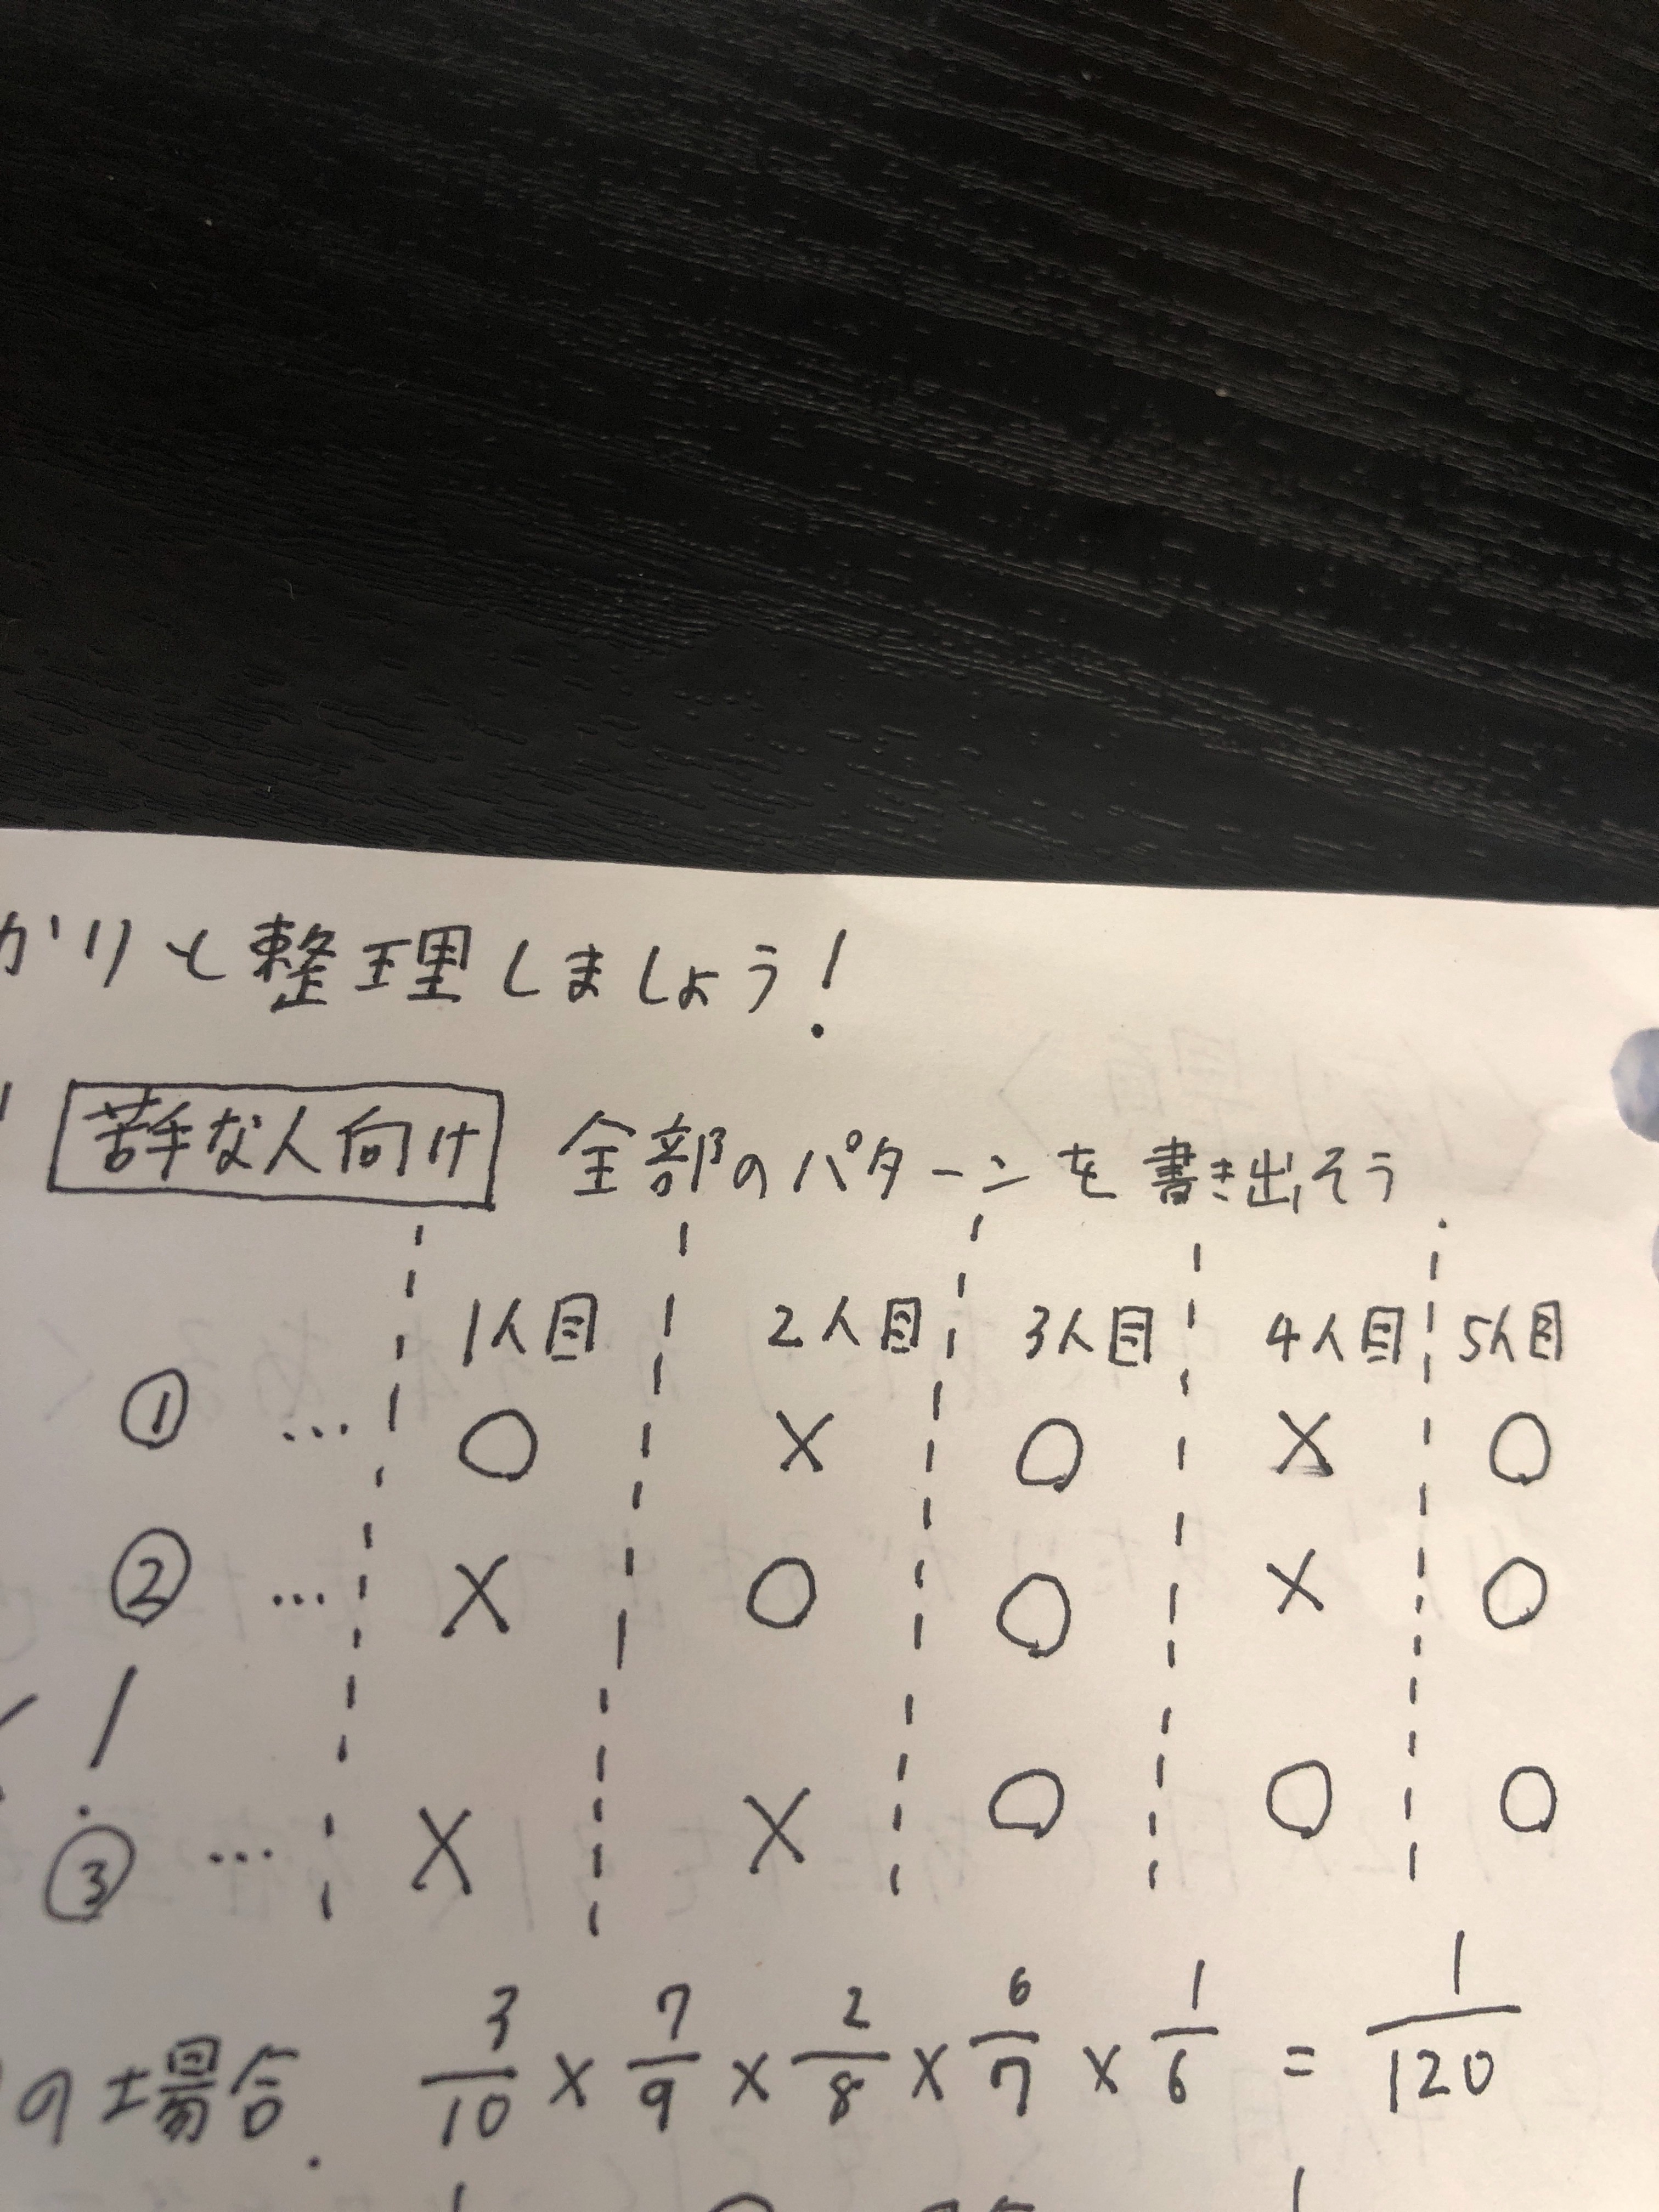 かりと整理しましょう!
苦手な人向け 全部のパターンを書き出そう.
1人目 2人目 3人目 4人目 5人目
① … ○ × ○ × ○
② … × ○ ○ × ○
③ … × × ○ ○ ○
の場合. 3/10 × 7/9 × 2/8 × 6/7 × 1/6 = 1/120